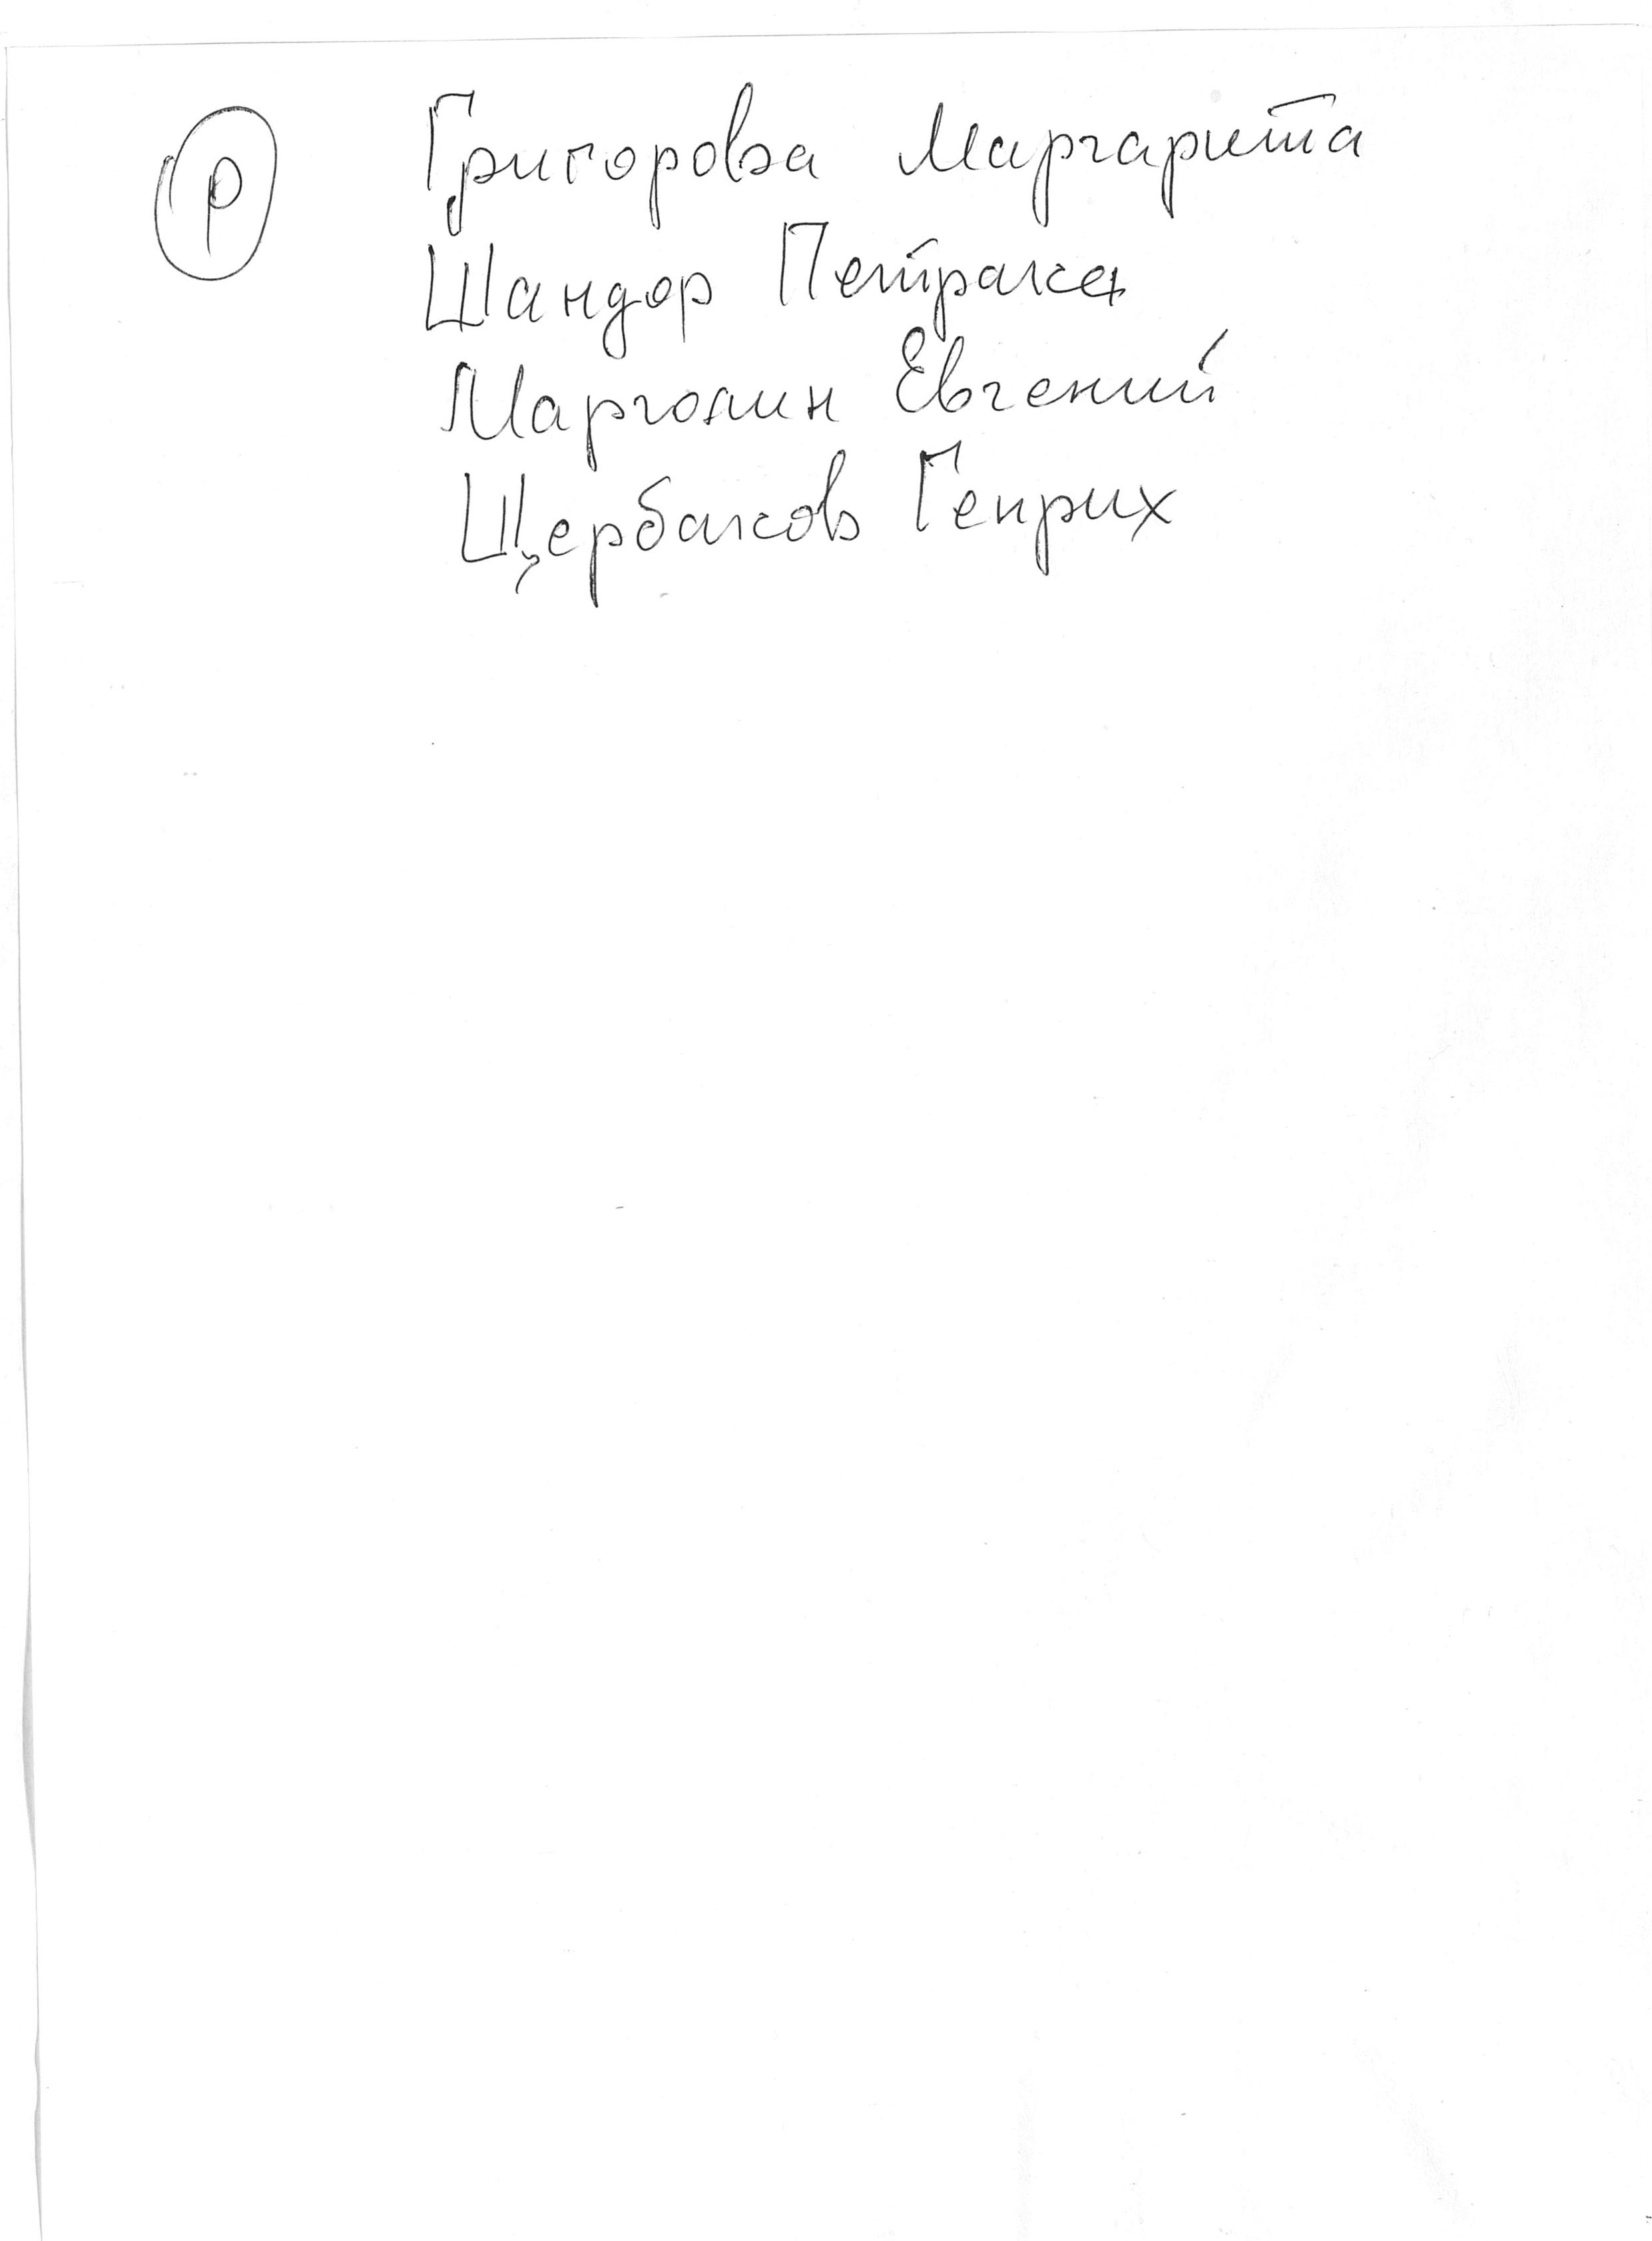 Р Григорова Маргарита
Шандор Петрака
Марголин Евгений
Щербаков Генрих